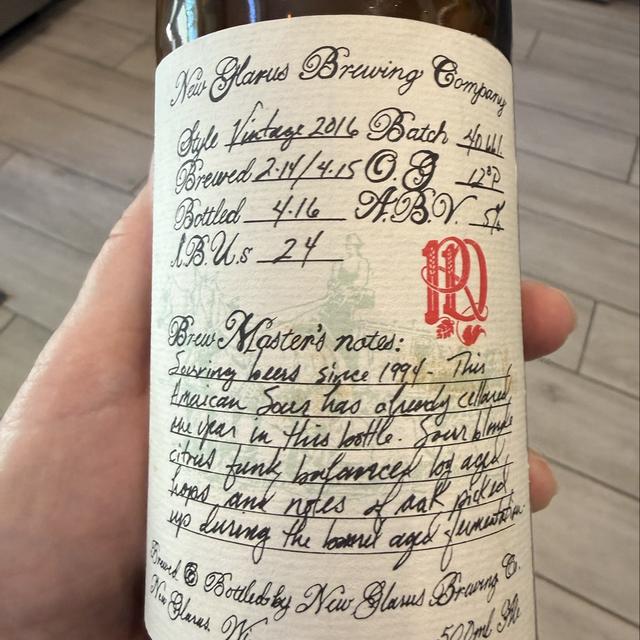 New Glarus Brewing Company
Style Vintage 2016 Batch 40 bbl.
Brewed 2.14/4.15 O.G 12°P
Bottled 4.16 A.B.V. 5%
I.B.U.s 24
Brew Master's notes:
Souring beers since 1994. This
American Sour has already cellared
one year in this bottle. Sour blonde
citrus funk balanced by aged
hops and notes of oak picked
up during the barrel aged fermentation.
Brewed & Bottled by New Glarus Brewing Co.
New Glarus, Wi 500ml Ale